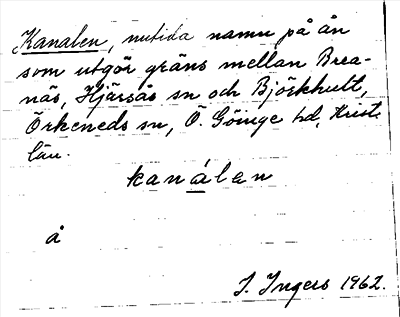 Kanalen, nutida namn på ån
som utgör gräns mellan Brea-
näs, Hjärsås sn och Björkhult,
Örkeneds sn, Ö. Göinge hd, Krist.
län.
kanálen
å
I. Ingers 1962.